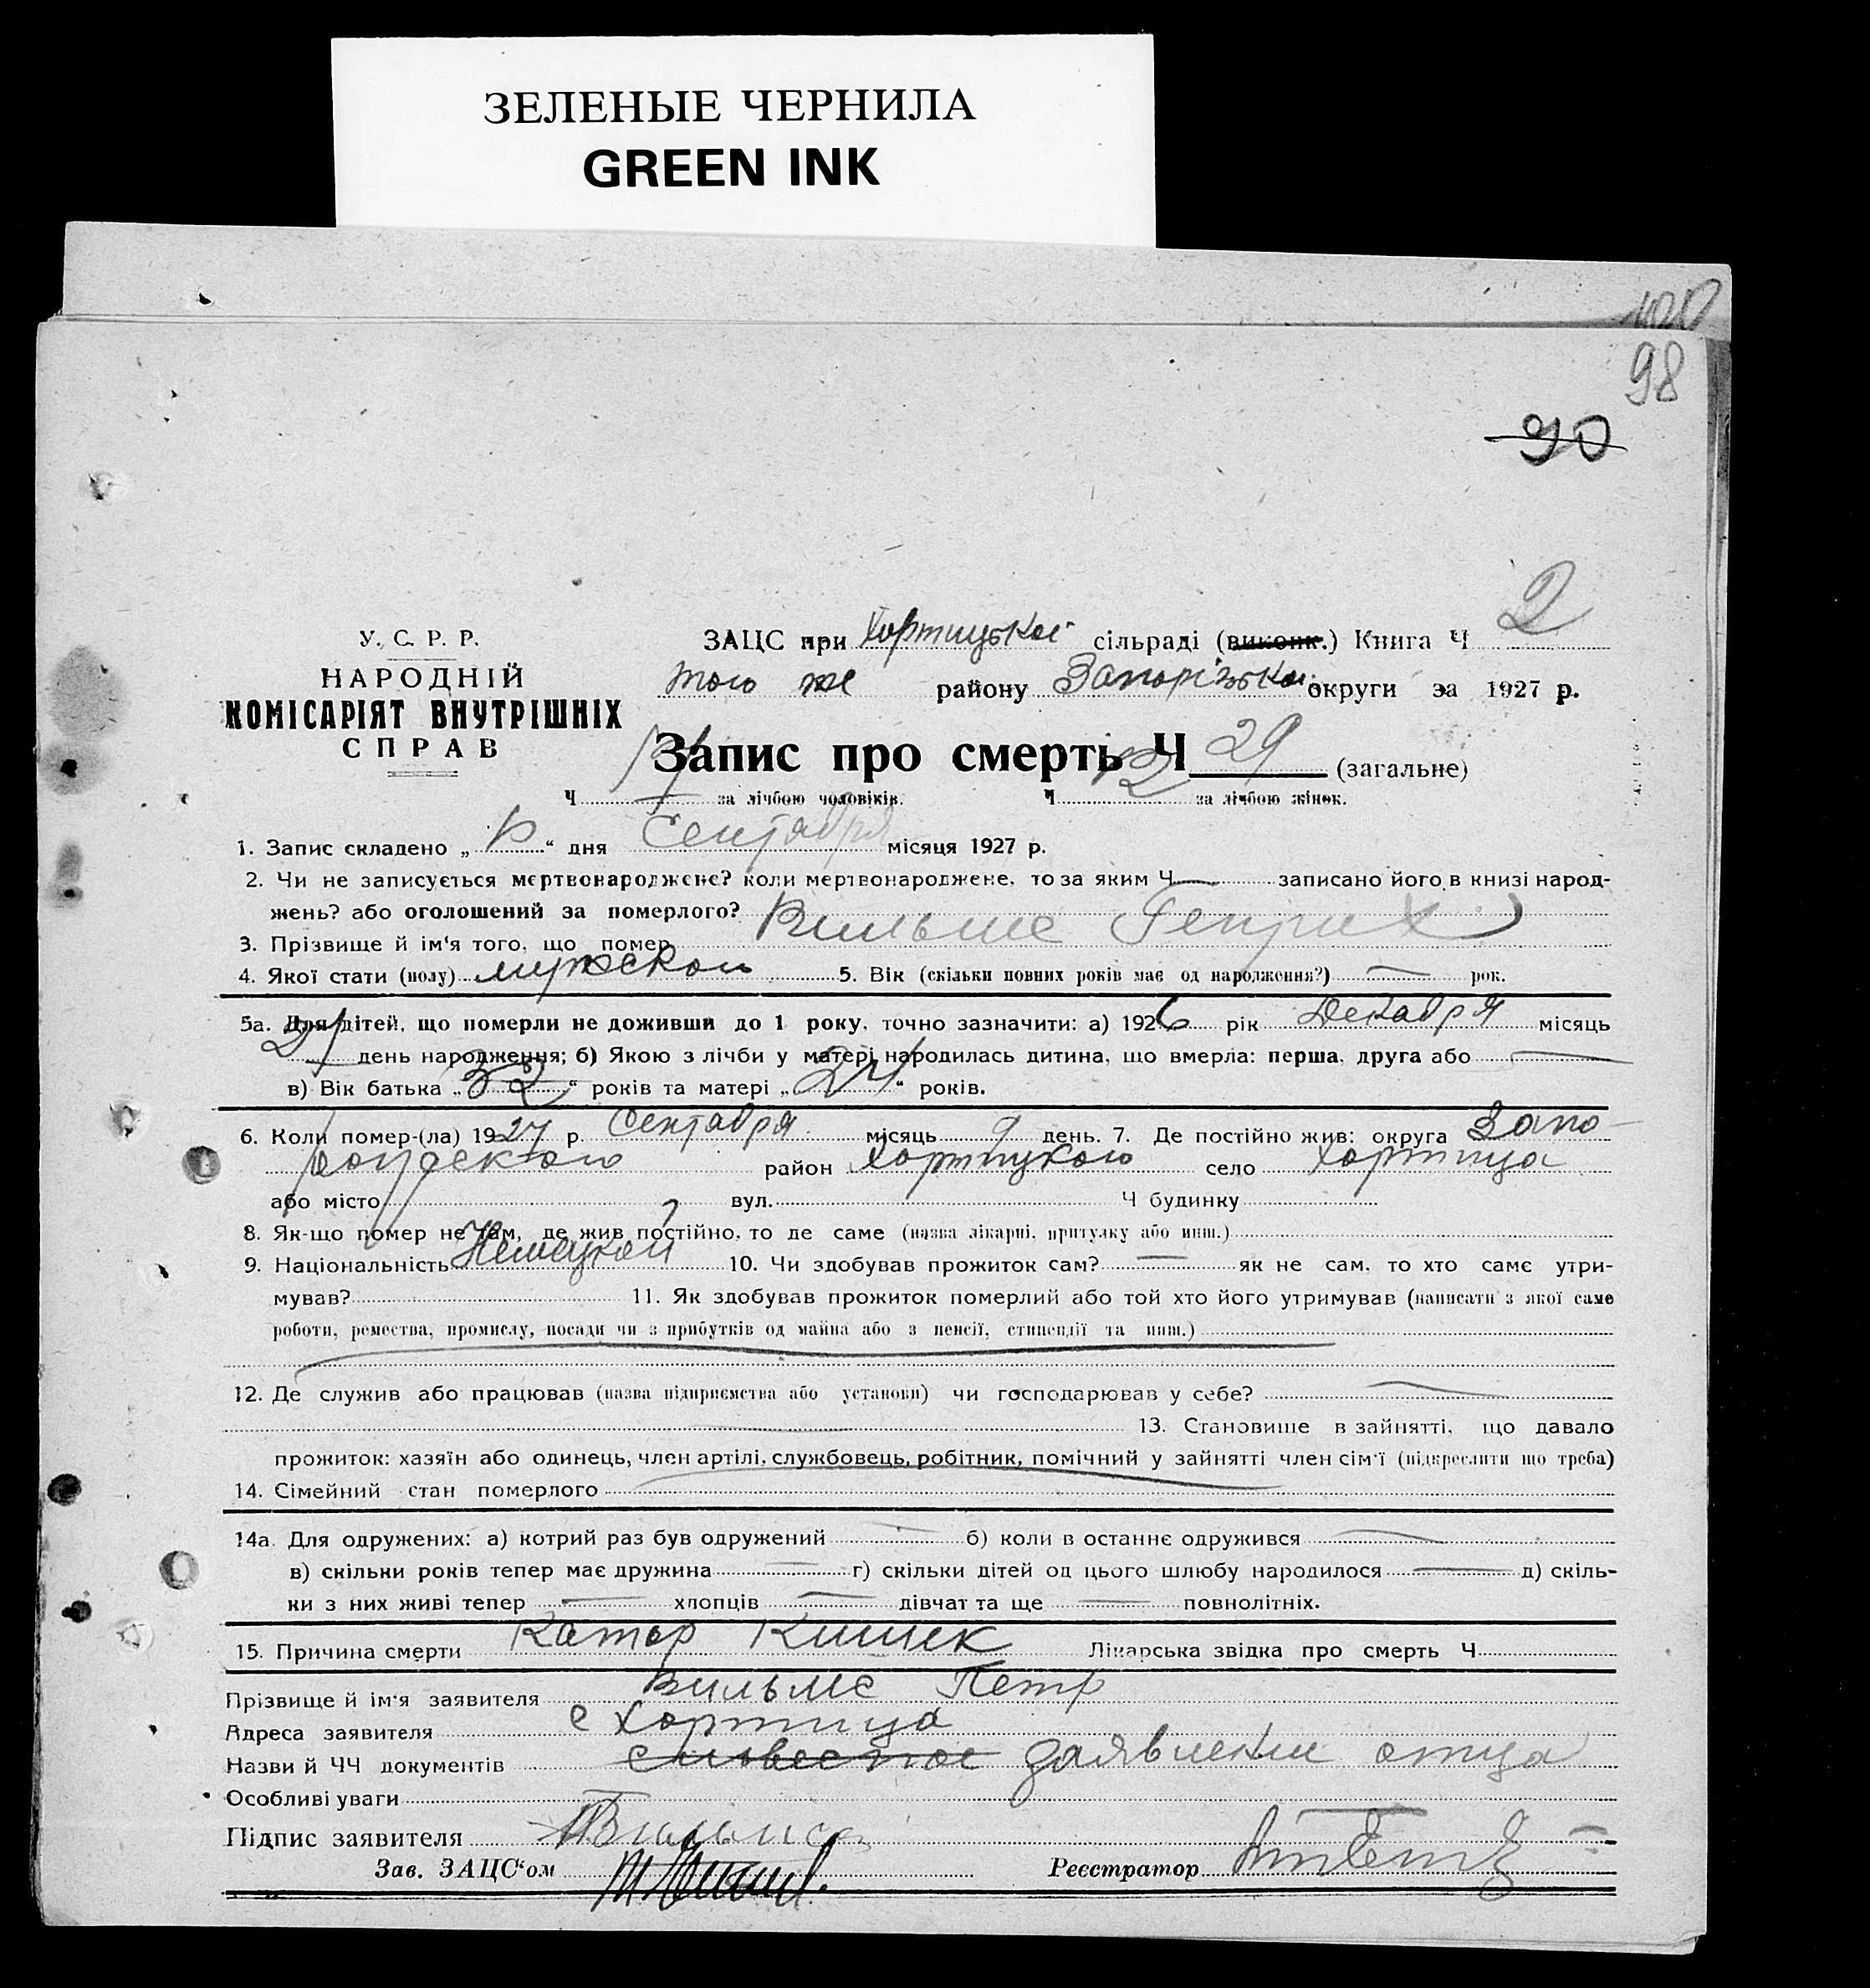 ЗЕЛЕНЫЕ ЧЕРНИЛА
GREEN INK
100
98
90
У. С. Р. Р.
НАРОДНІЙ
КОМІСАРІЯТ ВНУТРІШНІХ
СПРАВ
ЗАЦС при Хортицькой сільраді (виконк.) Книга Ч 2
того же району Запорізькой округи за 1927 р.
Запис про смерть Ч 29 (загальне)
Ч 17 за лічбою чоловіків. Ч 12 за лічбою жінок.
1. Запис складено „ “ дня Сентября місяця 1927 р.
2. Чи не записується мертвонароджене? коли мертвонароджене, то за яким Ч — записано його в книзі народ-
жень? або оголошений за померлого?
3. Прізвище й ім'я того, що помер Вильмс Генрих
4. Якої стати (полу) мужской 5. Вік (скільки повних років має од народження?) — рок.
5а. Для дітей, що померли не доживши до 1 року, точно зазначити: а) 1926 рік Декабря місяць
21 день народження; б) Якою з лічби у матері народилась дитина, що вмерла: перша, друга або —
в) Вік батька „32“ років та матері „24“ років.
6. Коли помер-(ла) 1927 р. Сентября місяць 9 день. 7. Де постійно жив: округа Запо-
рожского район Хортицкого село Хортица
або місто вул. Ч будинку
8. Як-що помер не там, де жив постійно, то де саме (назва лікарні, притулку або инш.)
9. Національність Немецкой 10. Чи здобував прожиток сам? — як не сам, то хто саме утри-
мував? 11. Як здобував прожиток померлий або той хто його утримував (написати з якої саме
роботи, ремества, промислу, посади чи з прибутків од майна або з пенсії, стипендії та инш.)
12. Де служив або працював (назва підприємства або установи) чи господарював у себе? —
13. Становище в зайнятті, що давало
прожиток: хазяїн або одинець, член артілі, службовець, робітник, помічний у зайнятті член сім'ї (підкреслити що треба)
14. Сімейний стан померлого
14а. Для одружених: а) котрий раз був одружений — б) коли в останнє одружився —
в) скільки років тепер має дружина — г) скільки дітей од цього шлюбу народилося — д) скіль-
ки з них живі тепер — хлопців — дівчат та ще — повнолітніх.
15. Причина смерти Катар Кишек Лікарська звідка про смерть Ч
Прізвище й ім'я заявителя Вильмс Петр
Адреса заявителя с Хортица
Назви й ЧЧ документів словесное заявление отца
Особливі уваги
Підпис заявителя Вильмс
Зав. ЗАЦС'ом Реєстратор